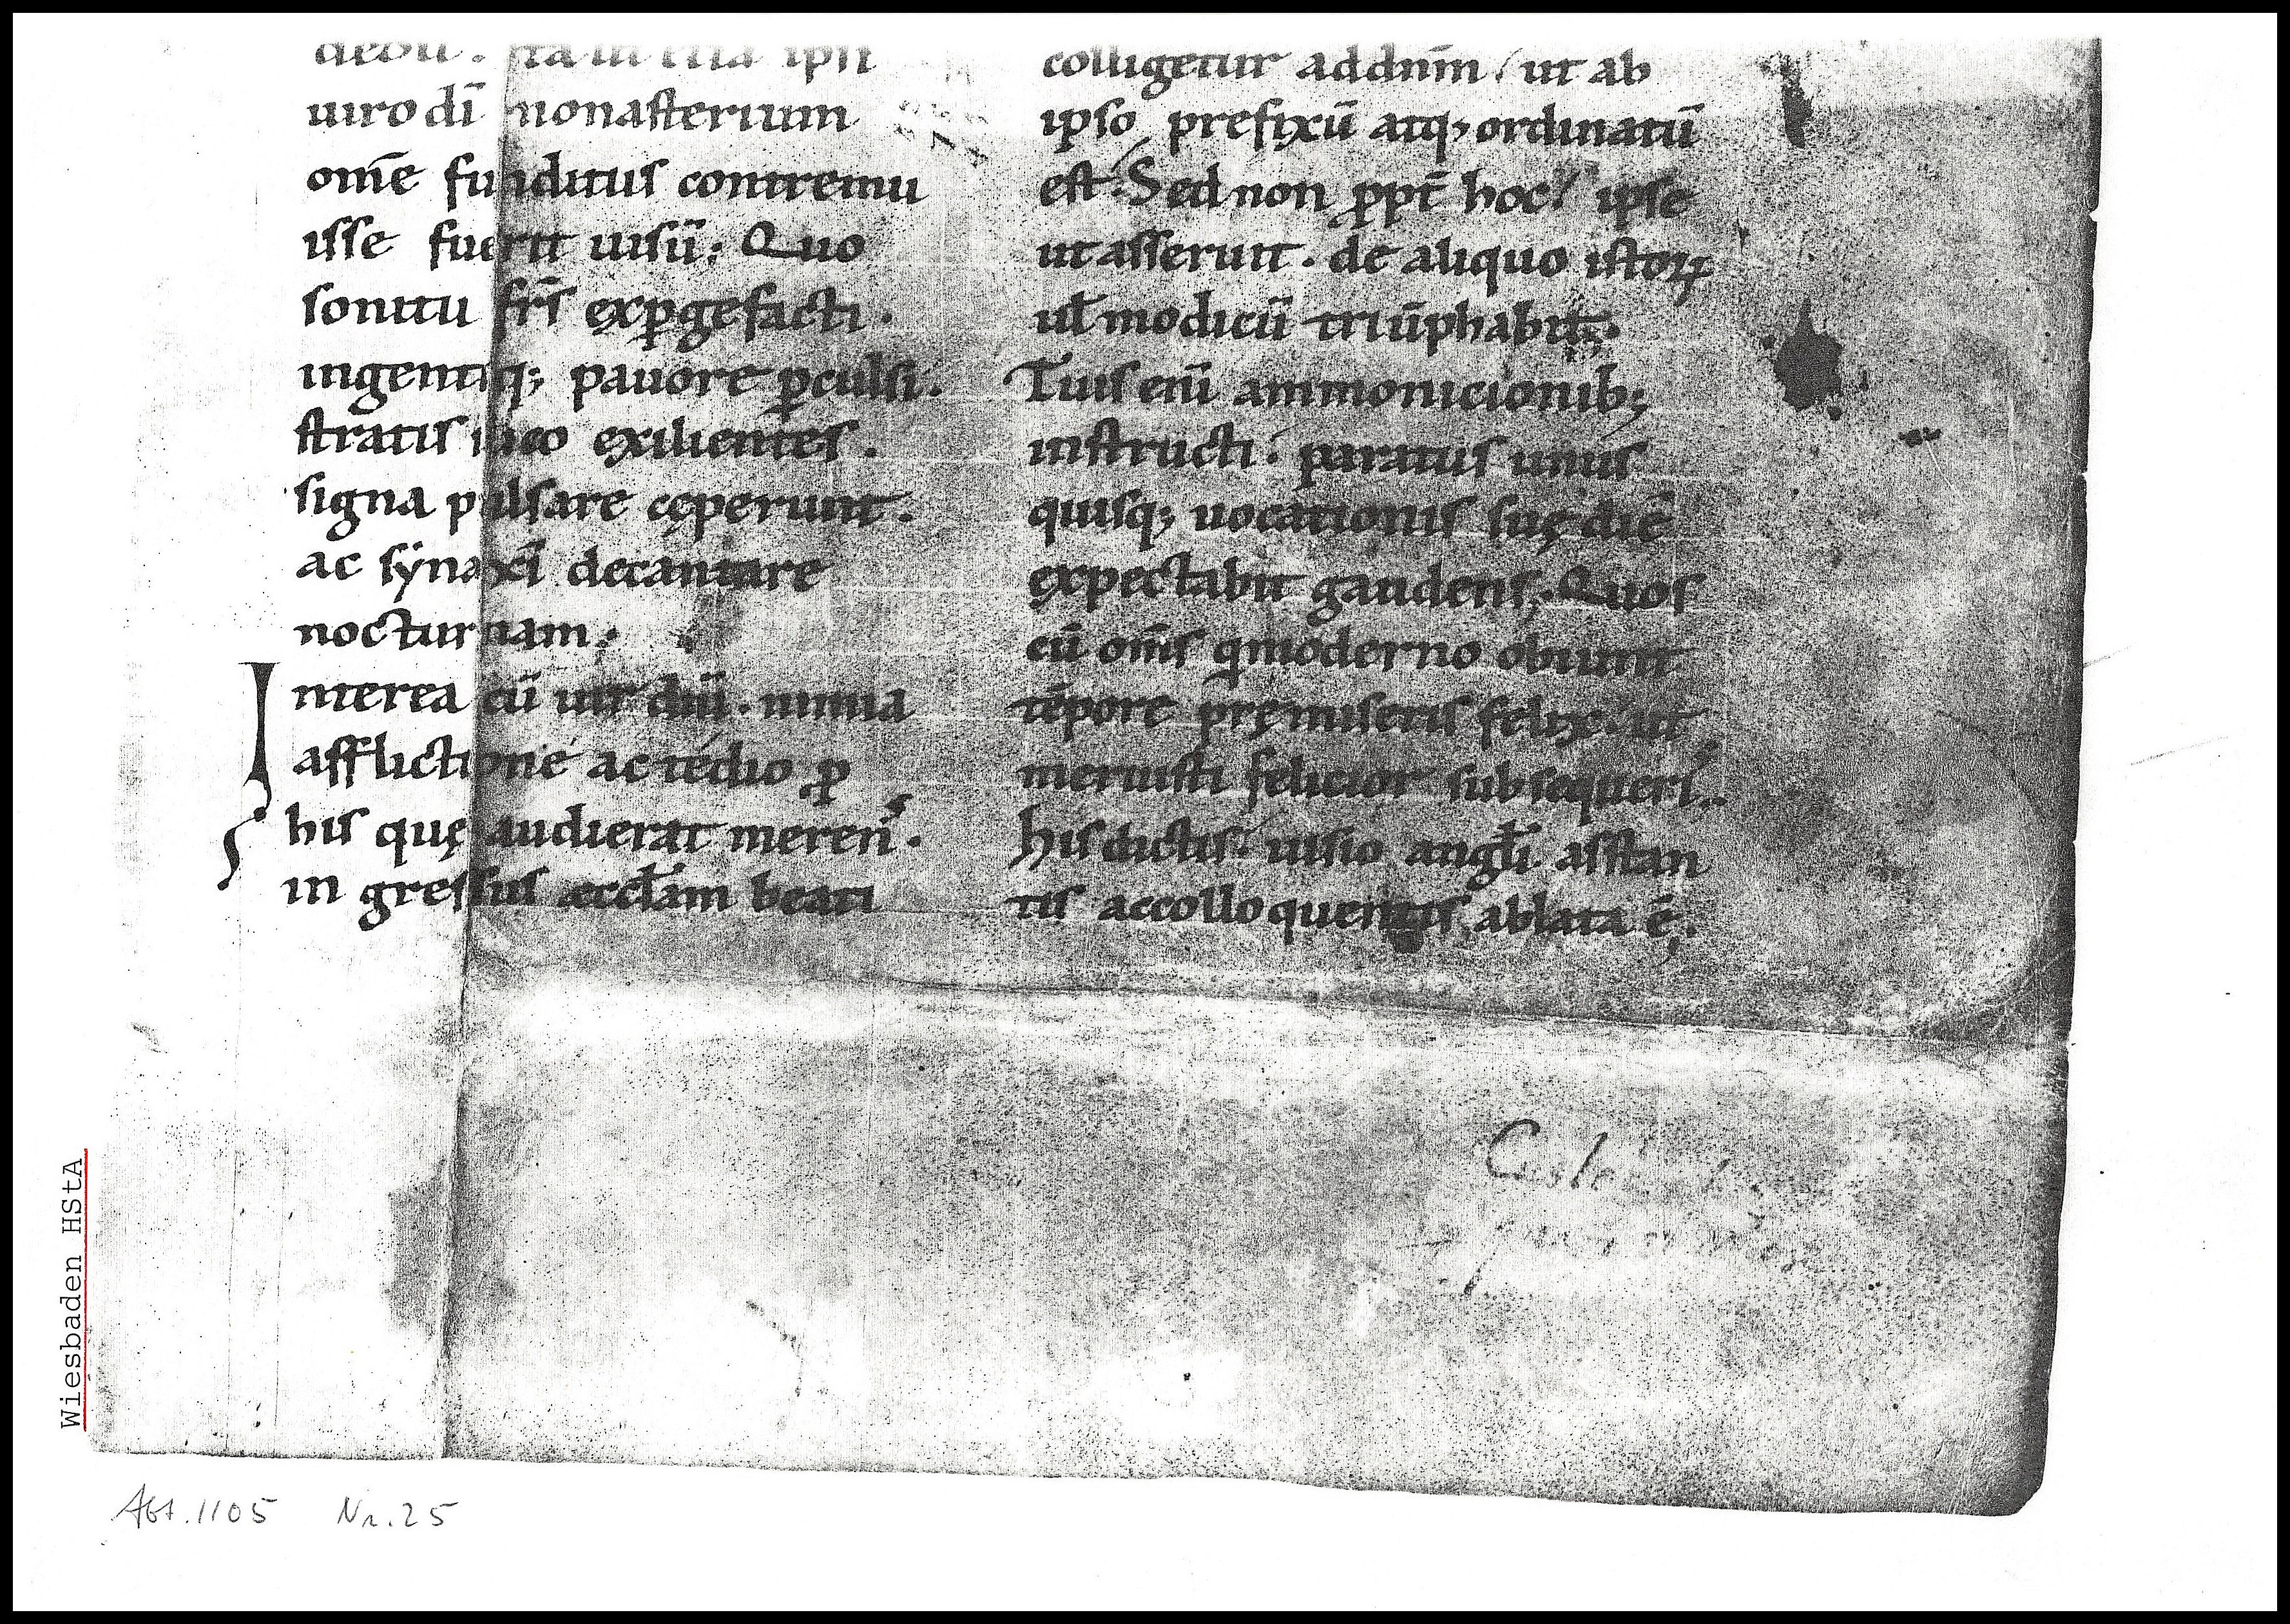 uiro dī monasterium
om̄e funditus contremu
isse fuerit uisū; Quo
sonitu fr̄s exꝑgefacti .
ingentiq; pauore ꝑculsi .
stratis ilico exilientes .
signa pulsare cęperunt .
ac synaxī decantare
nocturnam .
Interea cū uir diū . nimia
afflictione ac tedio ꝓ
his quę audierat meren̄s .
in gressus ęccłam beati
colligetur ad dnm̄ / ut ab
ipso prefixū atq; ordinatū
est; Sed non ꝓpt̄ hoc / ipse
ut asserunt . de aliquo istoꝝ
uł modicū triūphabit;
Tuis enī ammonicionib;
instructi . paratus unus
quisq; uocationis suę diē
expectabit gaudens; Quos
cū om̄s q moderno obiunt
tēpore pręmiseris felix / ut
meruisti felicior subsequeris .
His dictis . uisio angłi asstan
tis ac collo quentis ablata ē;
Wiesbaden HStA
Abt. 1105 Nr. 25